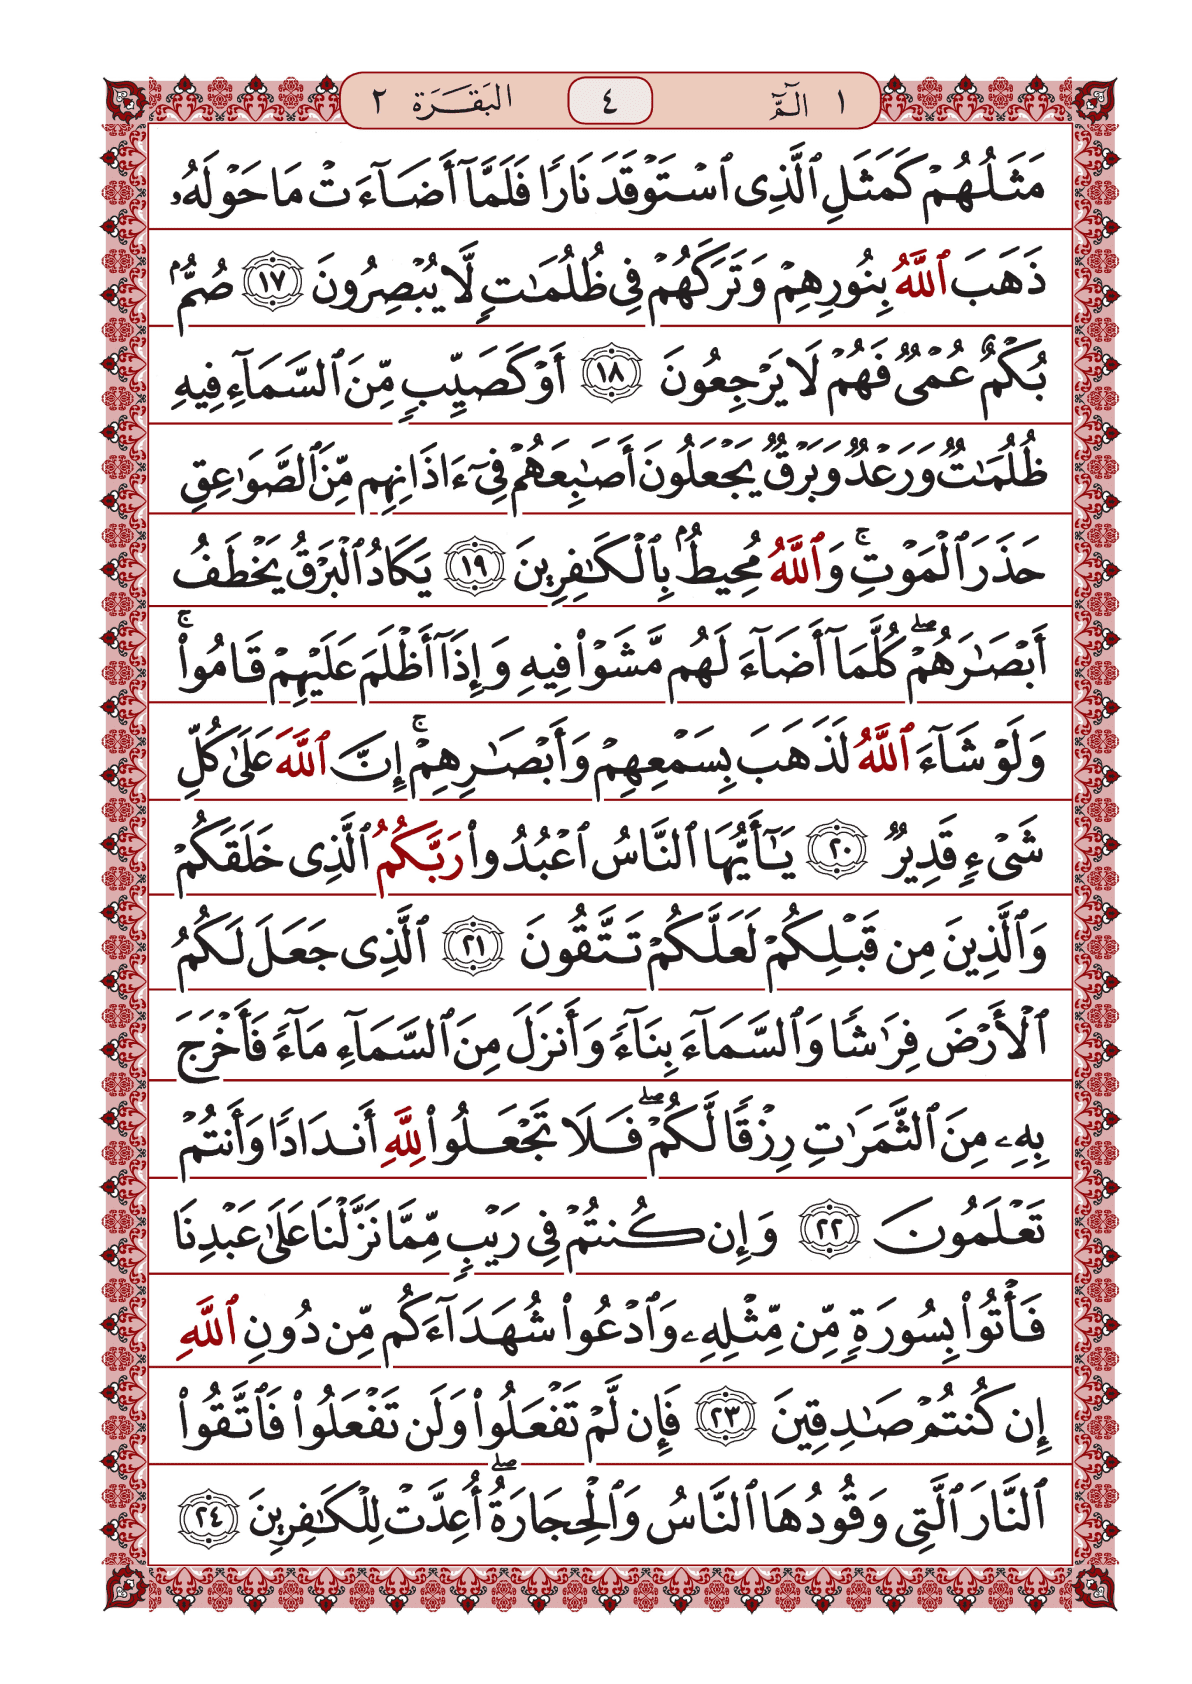 ١ الٓمّٓ ٤ البَقَرَة ٢
مَثَلُهُمْ كَمَثَلِ ٱلَّذِى ٱسْتَوْقَدَ نَارًا فَلَمَّآ أَضَآءَتْ مَا حَوْلَهُۥ
ذَهَبَ ٱللَّهُ بِنُورِهِمْ وَتَرَكَهُمْ فِى ظُلُمَٰتٍ لَّا يُبْصِرُونَ ١٧ صُمٌّۢ
بُكْمٌ عُمْىٌ فَهُمْ لَا يَرْجِعُونَ ١٨ أَوْ كَصَيِّبٍ مِّنَ ٱلسَّمَآءِ فِيهِ
ظُلُمَٰتٌ وَرَعْدٌ وَبَرْقٌ يَجْعَلُونَ أَصَٰبِعَهُمْ فِىٓ ءَاذَانِهِم مِّنَ ٱلصَّوَٰعِقِ
حَذَرَ ٱلْمَوْتِ ۚ وَٱللَّهُ مُحِيطٌۢ بِٱلْكَٰفِرِينَ ١٩ يَكَادُ ٱلْبَرْقُ يَخْطَفُ
أَبْصَٰرَهُمْ ۖ كُلَّمَآ أَضَآءَ لَهُم مَّشَوْا۟ فِيهِ وَإِذَآ أَظْلَمَ عَلَيْهِمْ قَامُوا۟ ۚ
وَلَوْ شَآءَ ٱللَّهُ لَذَهَبَ بِسَمْعِهِمْ وَأَبْصَٰرِهِمْ ۚ إِنَّ ٱللَّهَ عَلَىٰ كُلِّ
شَىْءٍ قَدِيرٌ ٢٠ يَٰٓأَيُّهَا ٱلنَّاسُ ٱعْبُدُوا۟ رَبَّكُمُ ٱلَّذِى خَلَقَكُمْ
وَٱلَّذِينَ مِن قَبْلِكُمْ لَعَلَّكُمْ تَتَّقُونَ ٢١ ٱلَّذِى جَعَلَ لَكُمُ
ٱلْأَرْضَ فِرَٰشًا وَٱلسَّمَآءَ بِنَآءً وَأَنزَلَ مِنَ ٱلسَّمَآءِ مَآءً فَأَخْرَجَ
بِهِۦ مِنَ ٱلثَّمَرَٰتِ رِزْقًا لَّكُمْ ۖ فَلَا تَجْعَلُوا۟ لِلَّهِ أَندَادًا وَأَنتُمْ
تَعْلَمُونَ ٢٢ وَإِن كُنتُمْ فِى رَيْبٍ مِّمَّا نَزَّلْنَا عَلَىٰ عَبْدِنَا
فَأْتُوا۟ بِسُورَةٍ مِّن مِّثْلِهِۦ وَٱدْعُوا۟ شُهَدَآءَكُم مِّن دُونِ ٱللَّهِ
إِن كُنتُمْ صَٰدِقِينَ ٢٣ فَإِن لَّمْ تَفْعَلُوا۟ وَلَن تَفْعَلُوا۟ فَٱتَّقُوا۟
ٱلنَّارَ ٱلَّتِى وَقُودُهَا ٱلنَّاسُ وَٱلْحِجَارَةُ ۖ أُعِدَّتْ لِلْكَٰفِرِينَ ٢٤